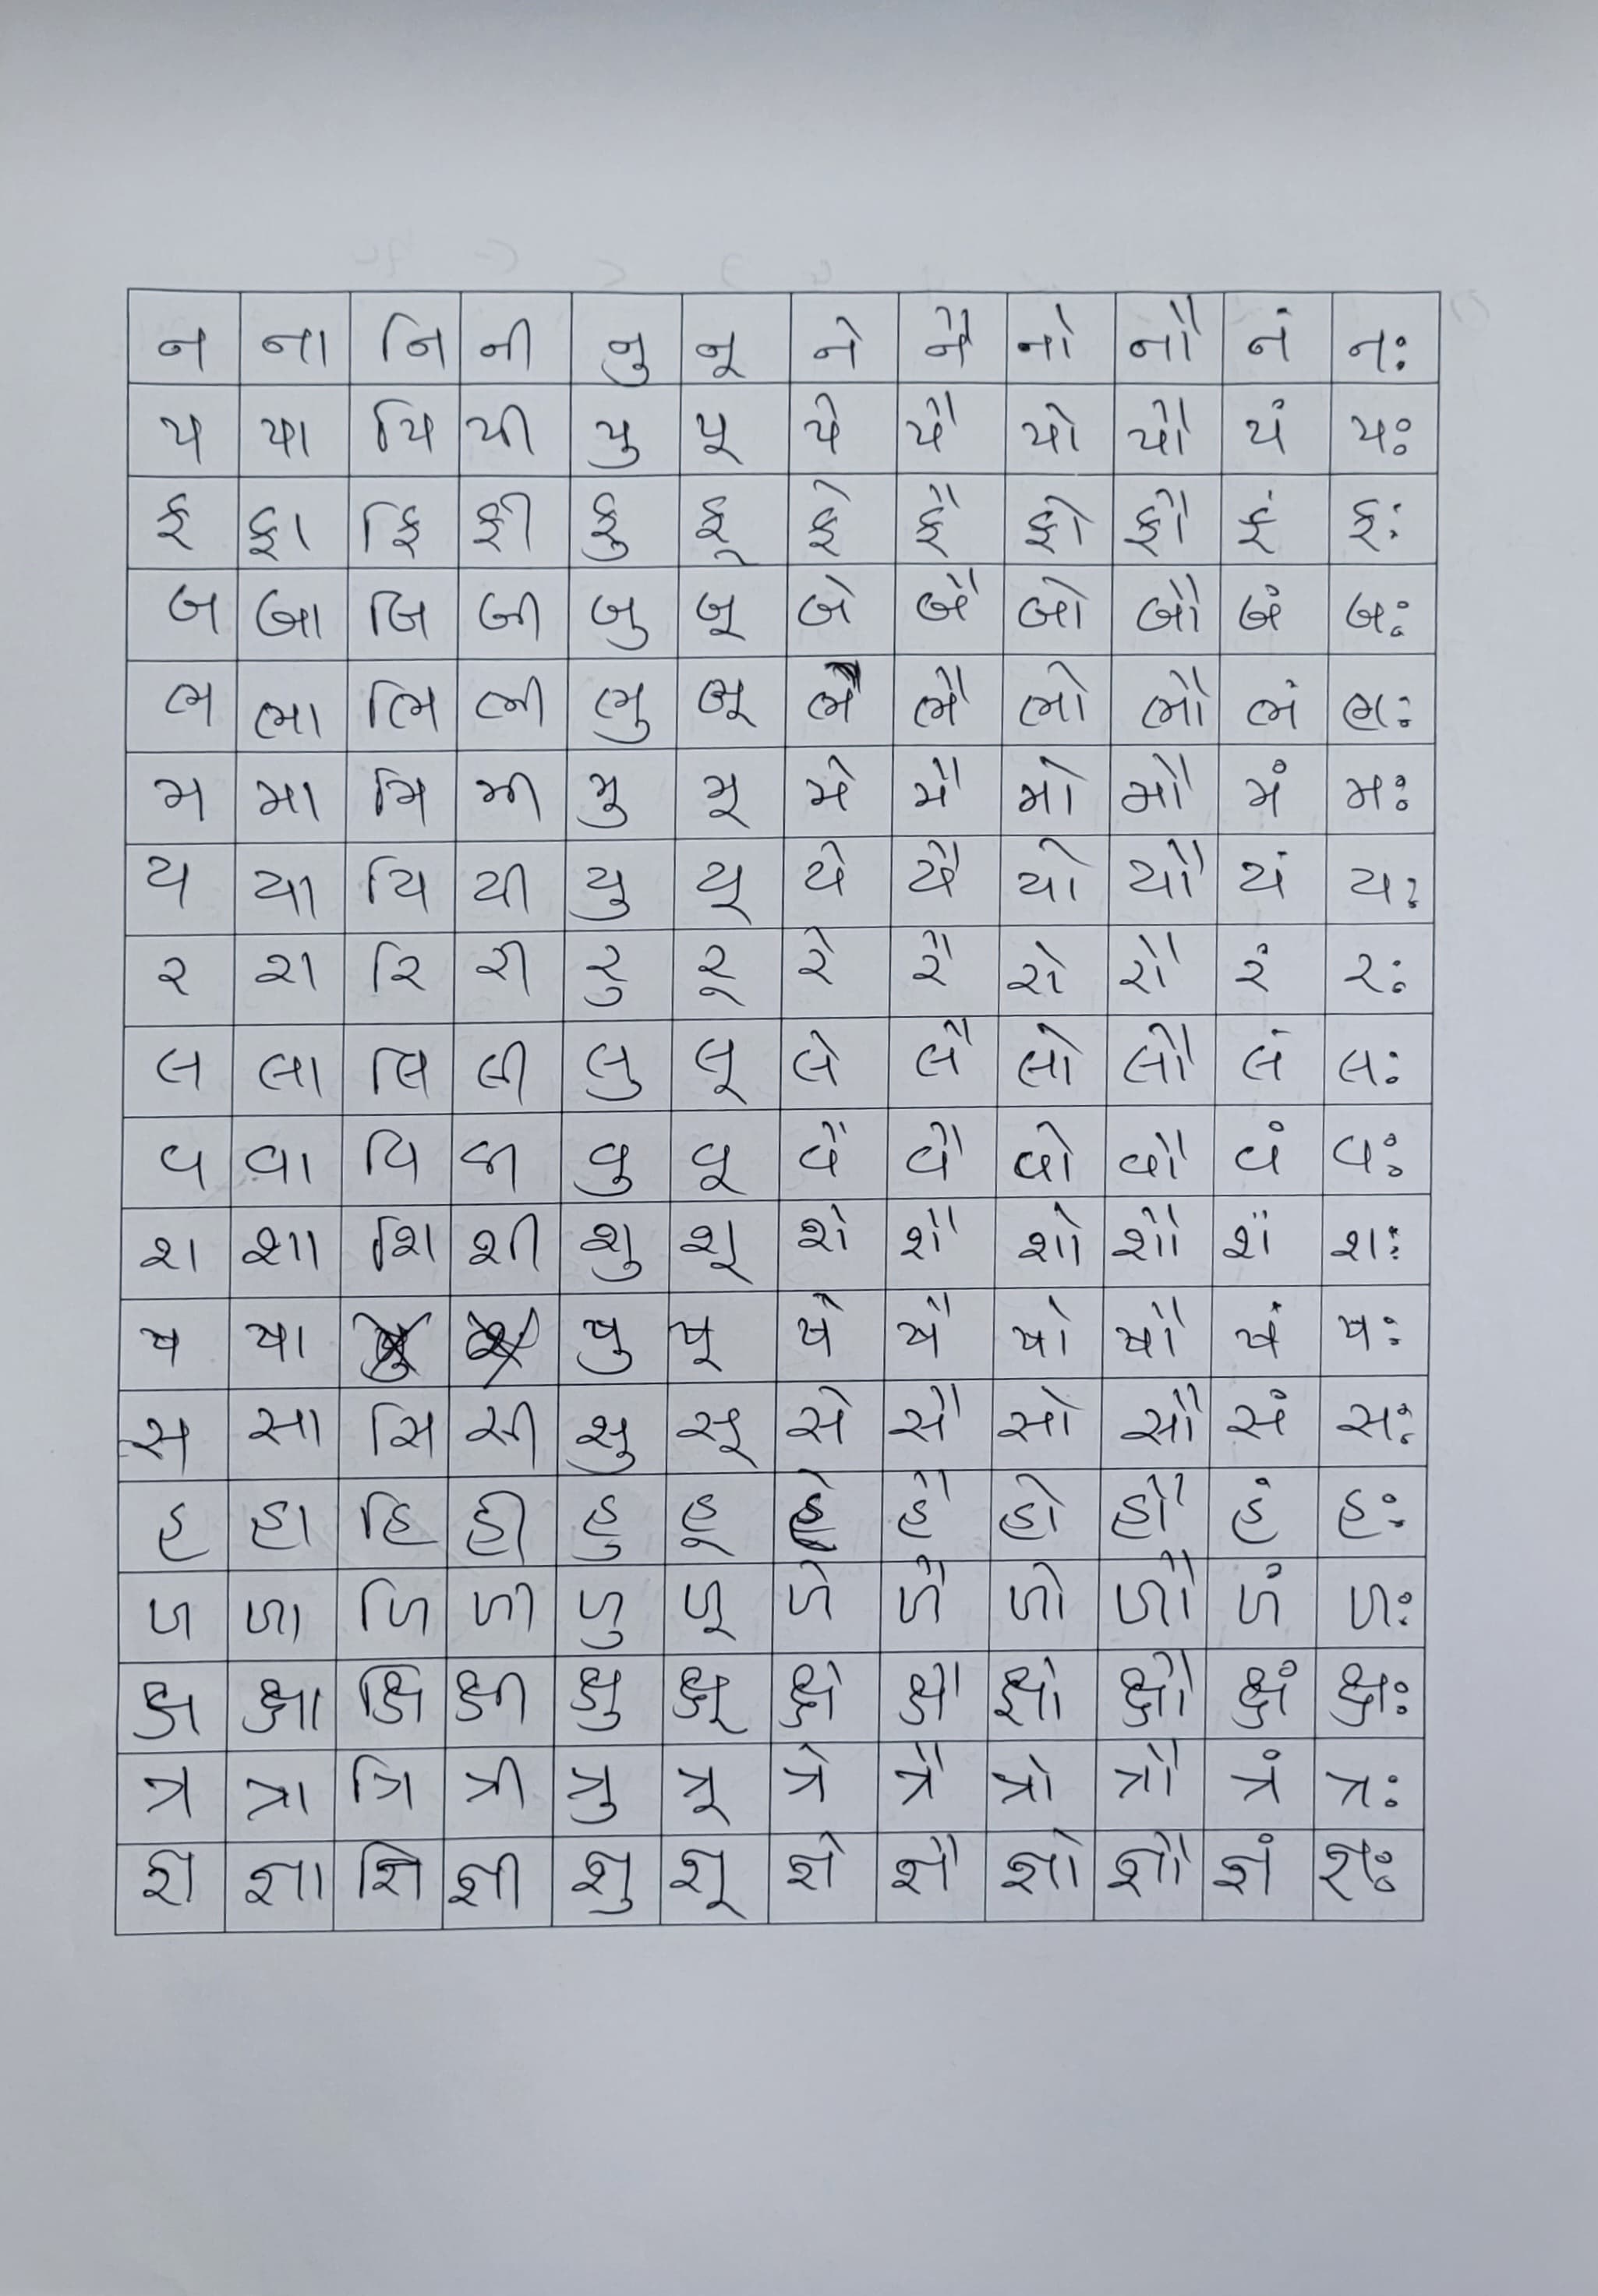 ન ના નિ ની નુ નૂ ને નૈ નો નૌ નં નઃ
પ પા પિ પી પુ પૂ પે પૈ પો પૌ પં પઃ
ફ ફા ફિ ફી ફુ ફૂ ફે ફૈ ફો ફૌ ફં ફઃ
બ બા બિ બી બુ બૂ બે બૈ બો બૌ બં બઃ
ભ ભા ભિ ભી ભુ ભૂ ભે ભૈ ભો ભૌ ભં ભઃ
મ મા મિ મી મુ મૂ મે મૈ મો મૌ મં મઃ
ય યા યિ યી યુ યૂ યે યૈ યો યૌ યં યઃ
ર રા રિ રી રુ રૂ રે રૈ રો રૌ રં રઃ
લ લા લિ લી લુ લૂ લે લૈ લો લૌ લં લઃ
વ વા વિ વી વુ વૂ વૈ વૈ વો વૌ વં વઃ
શ શા શિ શી શુ શૂ શે શૈ શો શૌ શં શઃ
ષ ષા ષુ ષૂ ષે ષૈ ષો ષૌ ષં ષઃ
સ સા સિ સી સુ સૂ સે સૈ સો સૌ સં સઃ
હ હા હિ હી હુ હૂ હે હૈ હો હૌ હં હઃ
ળ ળા ળિ ળી ળુ ળૂ ળે ળૈ ળો ળૌ ળં ળઃ
ક્ષ ક્ષા ક્ષિ ક્ષી ક્ષુ ક્ષૂ ક્ષે ક્ષૈ ક્ષો ક્ષૌ ક્ષં ક્ષઃ
ત્ર ત્રા ત્રિ ત્રી ત્રુ ત્રૂ ત્રે ત્રૈ ત્રો ત્રૌ ત્રં ત્રઃ
જ્ઞ જ્ઞા જ્ઞિ જ્ઞી જ્ઞુ જ્ઞૂ જ્ઞે જ્ઞૈ જ્ઞો જ્ઞૌ જ્ઞં જ્ઞઃ